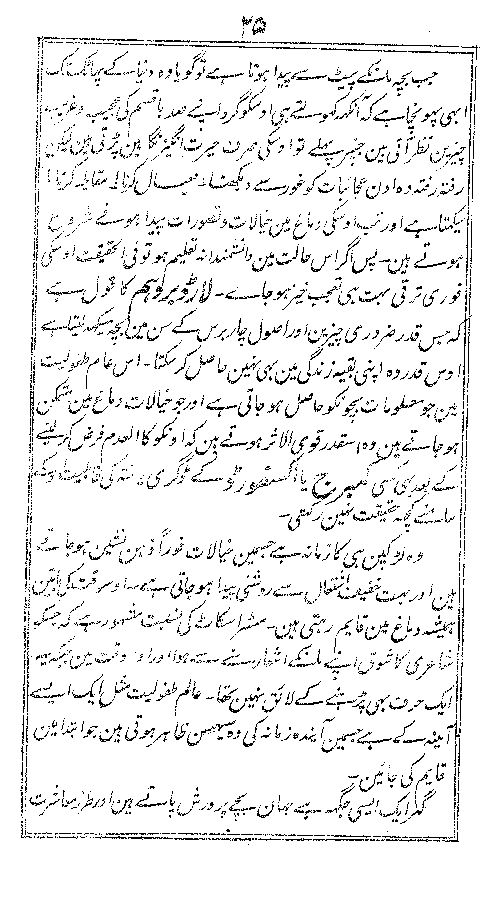 ۲۵
جب بچہ ماںکے پیٹ سے پیدا ہوتا ہے تو گویا وہ دنیا کے پھاٹک تک
ابھی پہونچا ہے کہ آنکھہ کھولتے ہی اوسکو گرد اپنے صدہا قسم کی عجیب و غریب
چیزین نظر آتی ہین جنپر پہلے تو اوسکی صرف حیرت انگیز نگاہین پڑتی ہین لیکن
رفتہ رفتہ وہ اون عجائبات کو غور سے دیکھنا خیال کرنا مقابلہ کرنا
سیکھتا ہے اور تب اوسکی دماغ مین خیالات و تصورات پیدا ہونے شروع
ہوتے ہین۔ پس اگر اس حالت مین دانشمندانہ تعلیم ہو تو فی الحقیقت اوسکی
فوری ترقی بہت ہی تعجب خیز ہوجاے۔ لارڈ بروہم کا قول ہے
کہ جس قدر ضروری چیزین اور اصول چار برس کے سن مین بچہ سیکھہ لیتا ہے
اوس قدر وہ اپنی بقیہ زندگی مین بھی نہین حاصل کرسکتا۔ اس عالم طفولیت
مین جو معلومات بچونکو حاصل ہوجاتی ہے اور جو خیالات دماغ مین متمکن
ہوجاتے ہین وہ اسقدر قوی الاثر ہوتے ہین کہ اونکو کالعدم فرض کرلینے
کے بعد کسی کیمبرج یا آکسفورڈ کے ڈگری یافتہ کی قابلیت اوسکے
سامنے کچھہ حقیقت نہین رکھتی۔
وہ لڑکپن ہی کا زمانہ ہے جسمین خیالات فوراً ذہن نشین ہوجاتے
ہین اور بہت خفیف اشتعال سے روشنی پیدا ہوجاتی ہے۔ اوسوقت کی باتین
ہمیشہ دماغ مین قایم رہتی ہین۔ مسٹر اسکاٹ کی نسبت مشہور ہے کہ اوسکو
شاعری کا شوق اپنے ماںکے اشعار سننے سے ہوا اور اوسوقت مین جبکہ وہ
ایک حرف بھی پڑہنے کے لائق نہین تھا۔ عالم طفولیت مثل ایک ایسے
آئینہ کے ہے جسمین آیندہ زمانہ کی وہ سبھین ظاہر ہوتی ہین جو ابتدا مین
قایم کی جائین۔
گھر ایک ایسی جگہہ ہے جہان بچے پرورش پاتے ہین اور طرز معاشرت